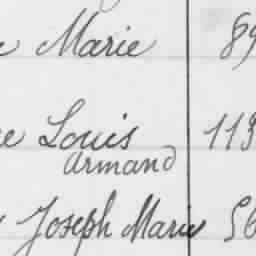 Marie 89
Louis 113
Armand
Joseph Marie 56